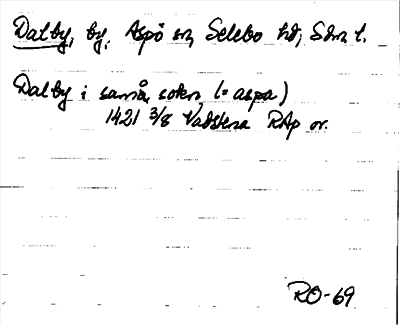 Dalby, by, Aspö sn, Selebo hd, Södm l.
Dalby i samå sokn (= aspa)
1421 3/8 Vadstena RAp or.
RO-69